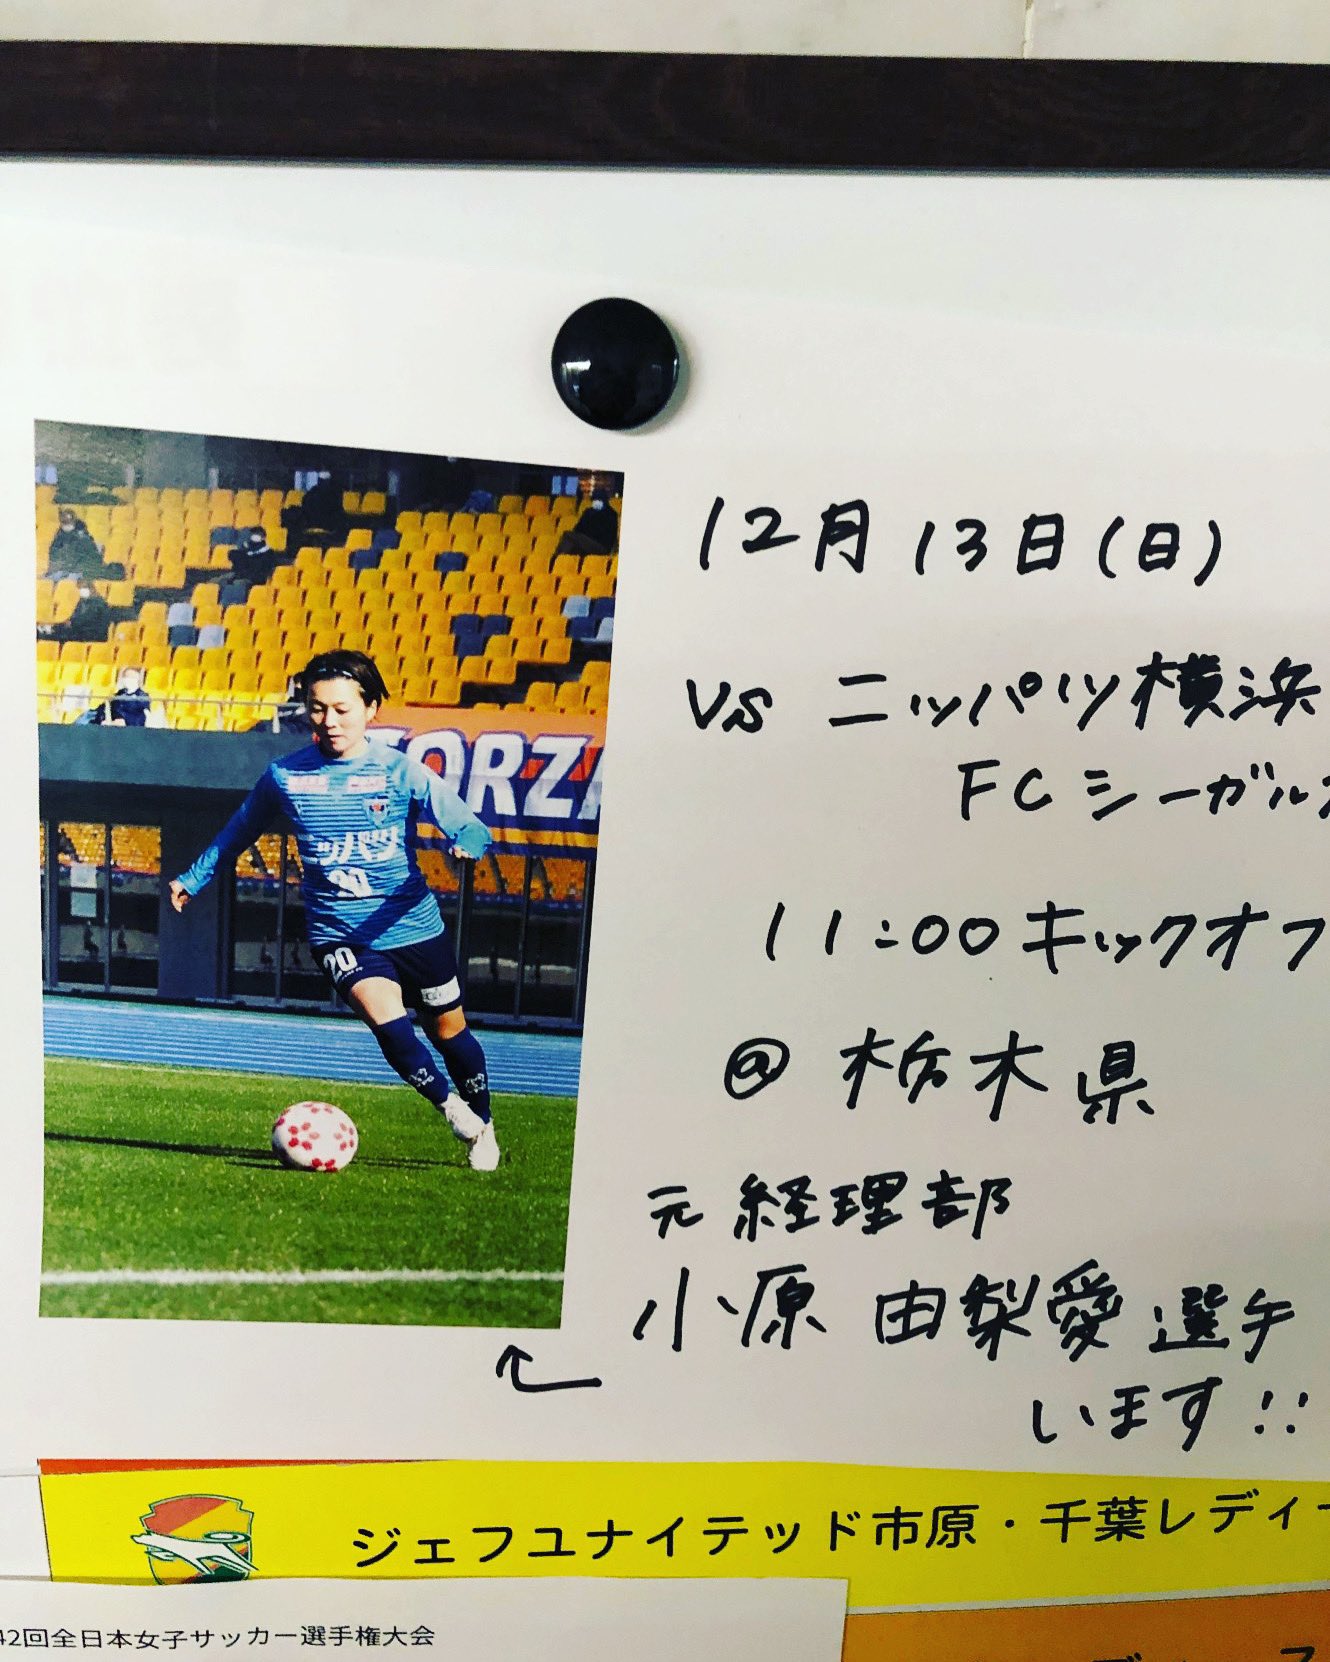 12月13日(日)
vs ニッパツ横浜
FCシーガル
11:00キックオフ
@ 栃木県
元 経理部
小原 由梨愛 選手
います!!
FORZA
ッパツ
20
20
ジェフユナイテッド市原・千葉レディー
42回全日本女子サッカー選手権大会